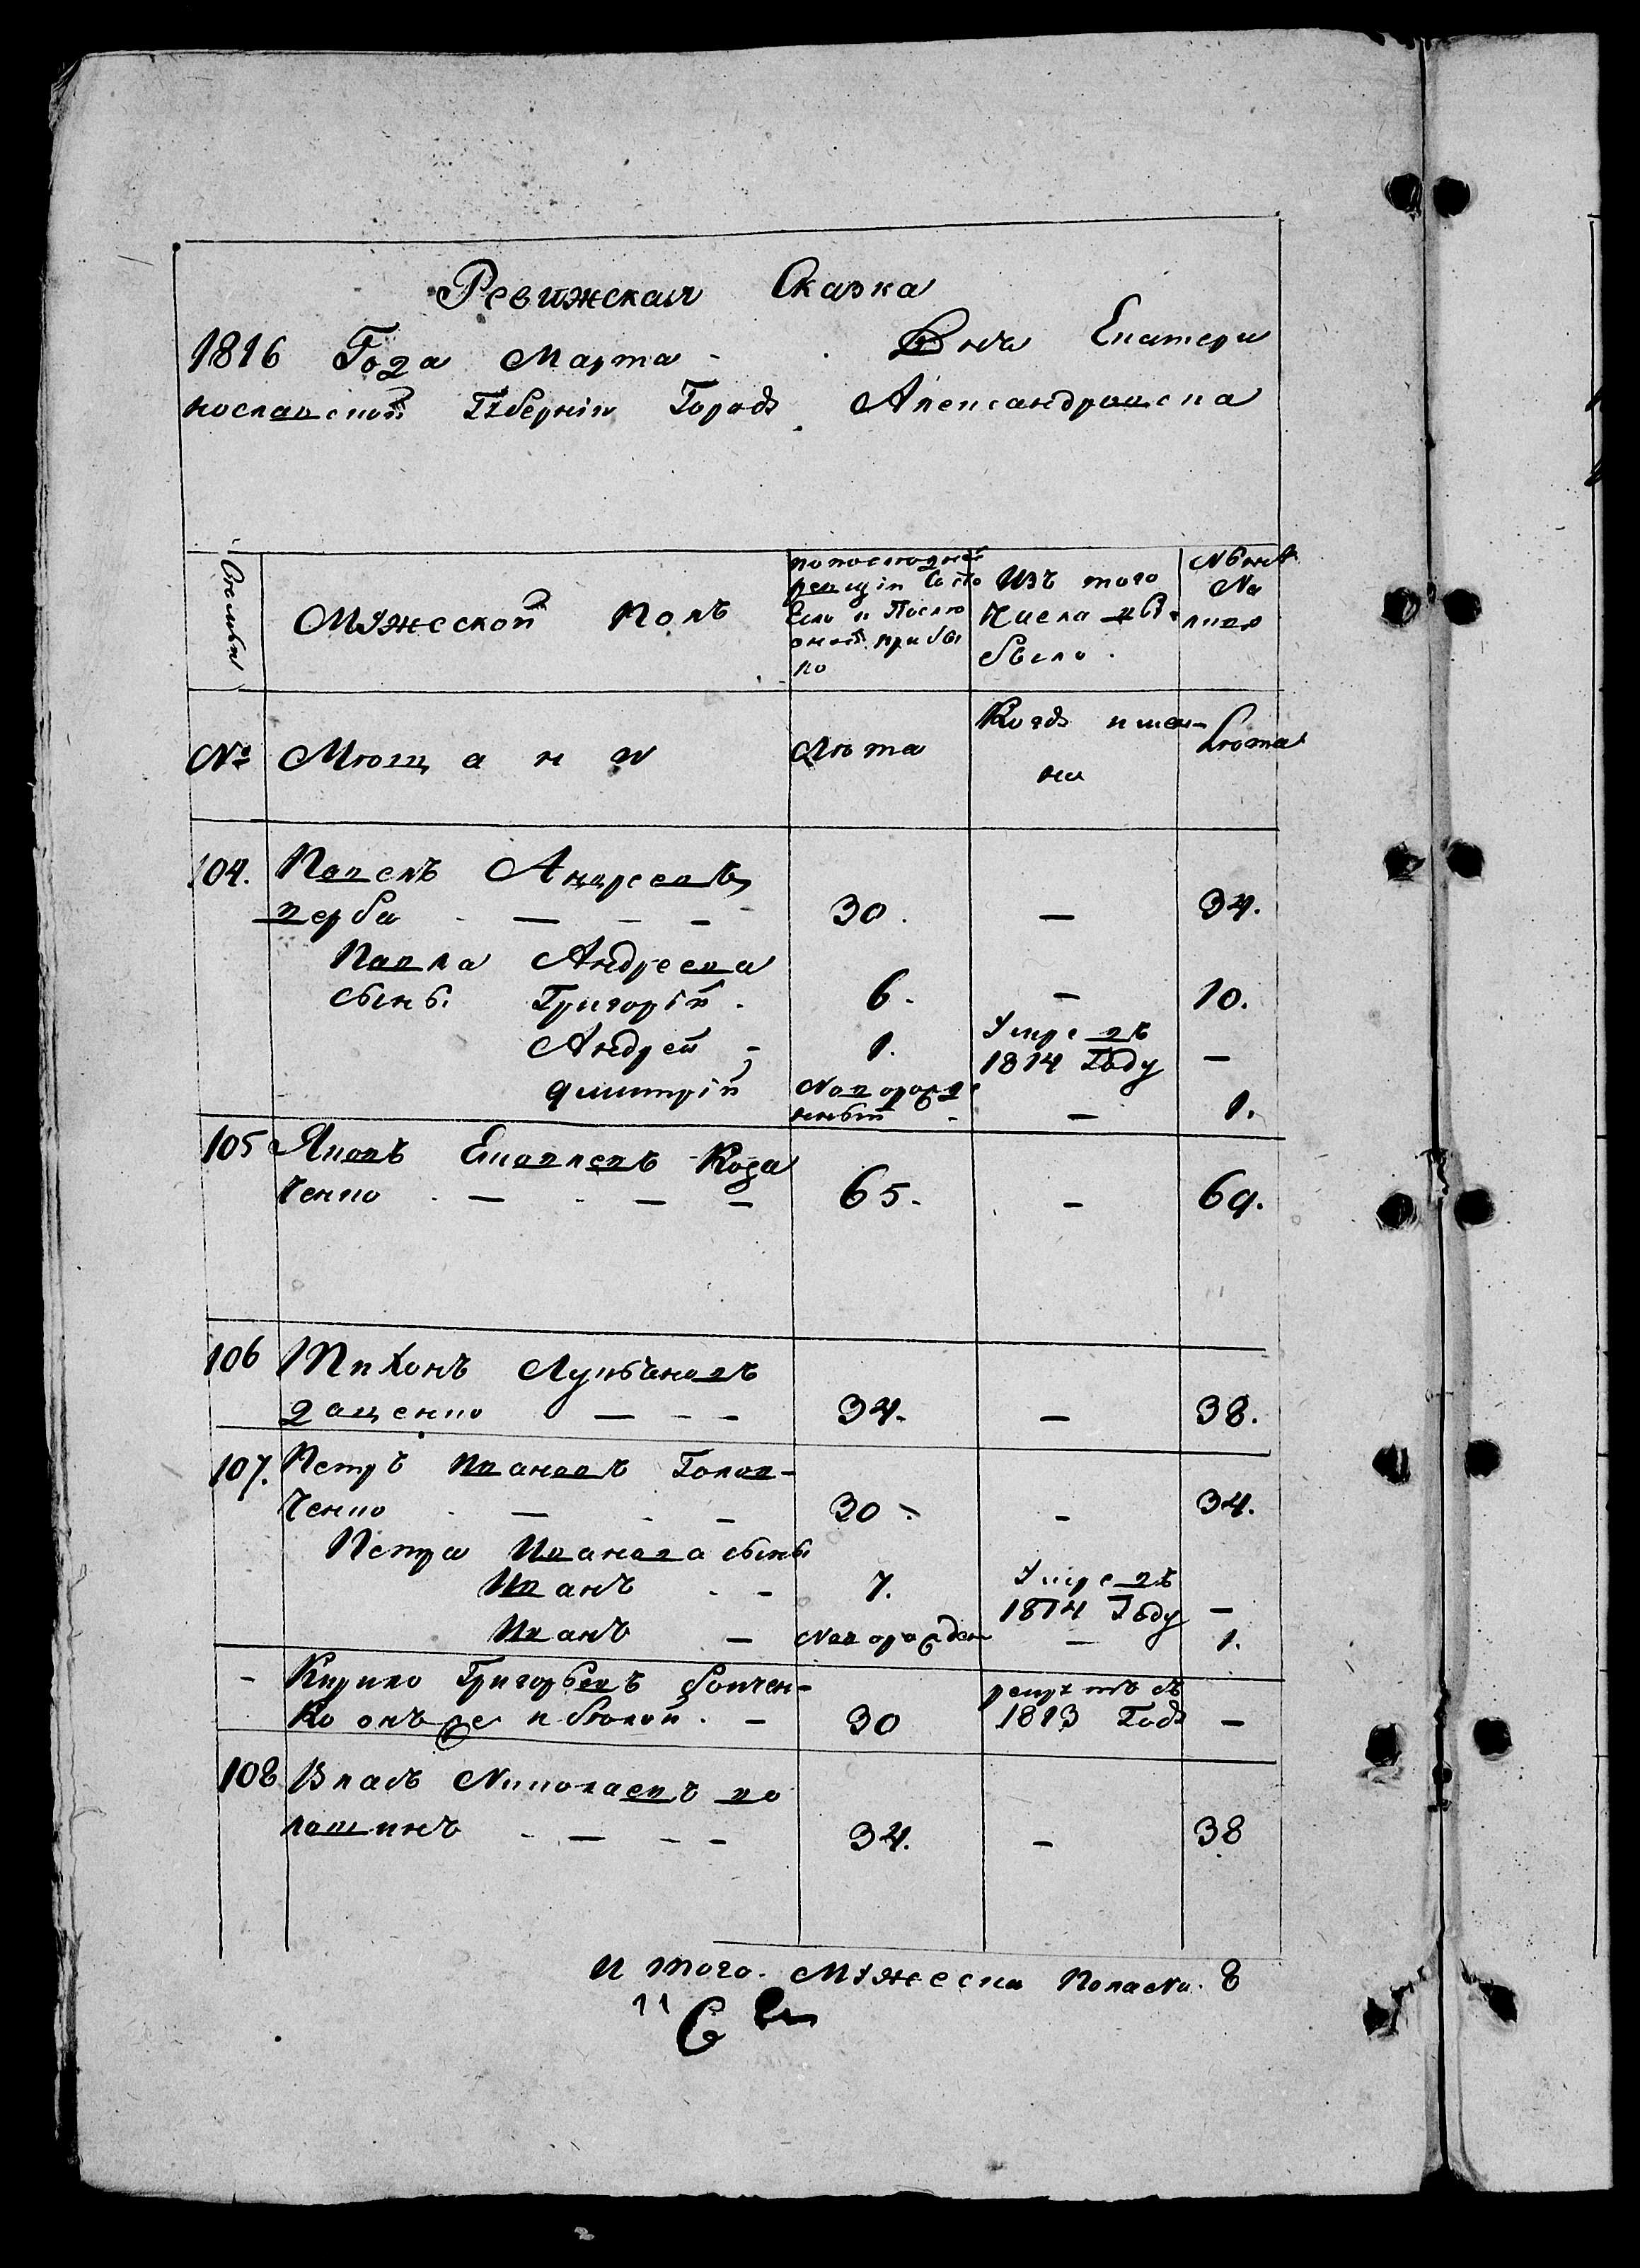 Ревижская Сказка
1816 Года Марта - Дня Екатери
нославской Гꙋберніи Городꙋ Александровска
Семьи
Мꙋжеской Полъ
По последней
ревизіи Состо
Ело и После
оной прибы
ло
Изъ того
Числа выбыло.
Ныне
На
лицо
№
Мещане
Лета
Когда именно
Лета
104. Павелъ Андреевъ
Верба - — - — - 30. — 34.
Павла Андреева
сыны Григорій - 6. — 10.
Андрей - 1. Умре въ 1814 Году —
Дмитрій Новорожденный - — 1.
105 Яковъ Емовлевъ Коза
ченко - — - — — 65. - 69.
106 Тихонъ Лукъяновъ
Даценко — - — 34. — 38.
107. Петръ Ивановъ Голов-
ченко - — - — 30. - 34.
Петра Иванова сыны
Иванъ - - 7. Умре въ 1814 Году —
Иванъ — Новорожден — 1.
- Кирило Григорьевъ Бойчен-
Ко онъ же и белой. — 30 рекрутъ съ 1813 Годꙋ —
108 Власъ Николаевъ Во
лошинъ - — - — 34. - 38
И того. Мꙋжеска Пола На. 8